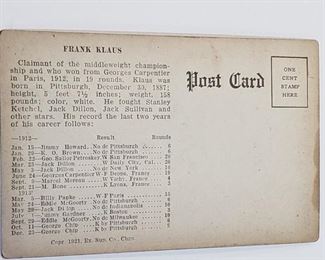 FRANK KLAUS
Claimant of the middleweight champion-
ship and who won from Georges Carpentier
in Paris, 1912, in 19 rounds. Klaus was
born in Pittsburgh, December 30, 1887;
height, 5 feet 7½ inches; weight, 158
pounds; color, white. He fought Stanley
Ketchel, Jack Dillon, Jack Sullivan and
other stars. His record the last two years
of his career follows:
—1912— Result Rounds
Jan. 15—Jimmy Howard No de Pittsburgh 6
Jan. —K. O. Brown No de Pittsburgh 6
Feb. 22—Geo Sailor Petroskey W San Francisco 20
Mar. 23—Jack Dillon W Daly City, Cal. 20
May 3—Jack Dillon No de New York 10
June 24—Georges Carpentier W-F Dieppe, France
Sept. 9—Marcel Moreau W Vichy, France
Sept. 21—M. Bone K Lyons, France
1913
Mar. 5—Billy Papke W-F Paris 15
May 24—Eddie McGoorty No de Pittsburgh 6
May —Jack Dillon No de Indianapolis 10
July —Jimmy Gardner K Boston
Sept. 29—Eddie McGoorty No de Milwaukee 10
Oct. 11—George Chip K by Pittsburgh 6
Dec. 23—George Chip K by Pittsburgh
Copr 1921, Ex. Sup. Co. Chgo
Post Card
ONE
CENT
STAMP
HERE